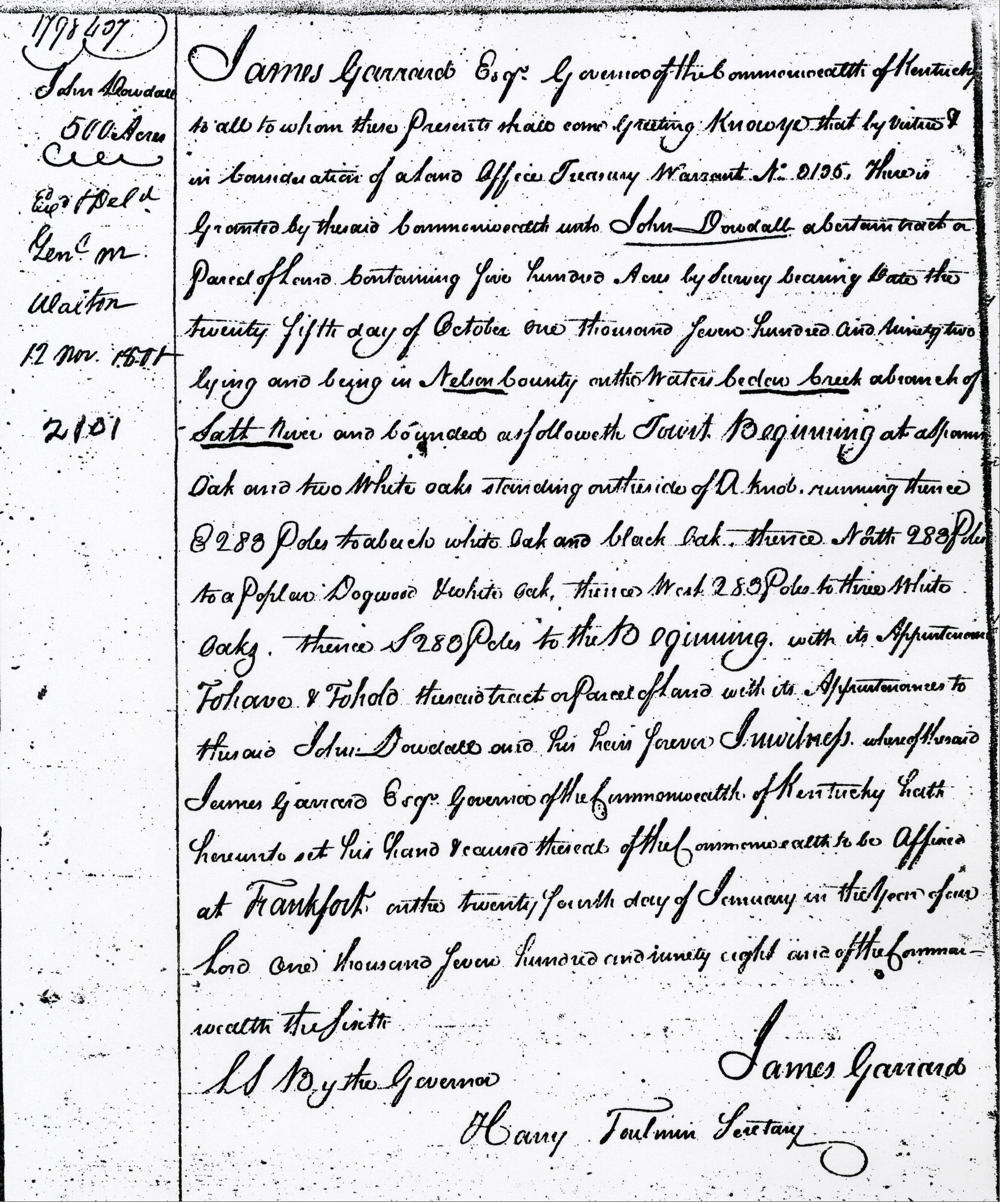 John Dowdall
500 Acres
Exd & Deld
Genl M
Walton
12 Nov. 1801
2101
James Garrard Esqr. Governor of the Commonwealth of Kentucky
to all to whom these Presents shall come Greeting Know ye that by virtue &
in Consideration of a Land Office Treasury Warrant No. 8195. There is
Granted by the said Commonwealth unto John Dowdall a Certain tract or
Parcel of Land Containing five hundred Acres by Survey bearing Date the
twenty fifth day of October one thousand Seven hundred and ninety two
lying and being in Nelson County on the Waters Cedar Creek a branch of
Salt River and bounded as followeth Towit. Beginning at a Spanish
Oak and two White oaks standing on the side of A knob. running thence
E 283 Poles to a beech white Oak and black Oak. thence North 283 Poles
to a Poplar Dogwood & white Oak, thence West 283 Poles to three White
Oaks. thence S 283 Poles to the Beginning. with its Appurtenances
To have & To hold the said tract or Parcel of Land with its Appurtenances to
the said John Dowdall and his heirs forever In witness. whereof the said
James Garrard Esqr. Governor of the Commonwealth. of Kentucky hath
hereunto set his hand & caused the seal of the Commonwealth to be Affixed
at Frankfort on the twenty fourth day of January in the Year of our
Lord one thousand Seven hundred and ninety eight and of the Common-
wealth the Sixth
LS By the Governor
James Garrard
Harry Toulmin Secretary